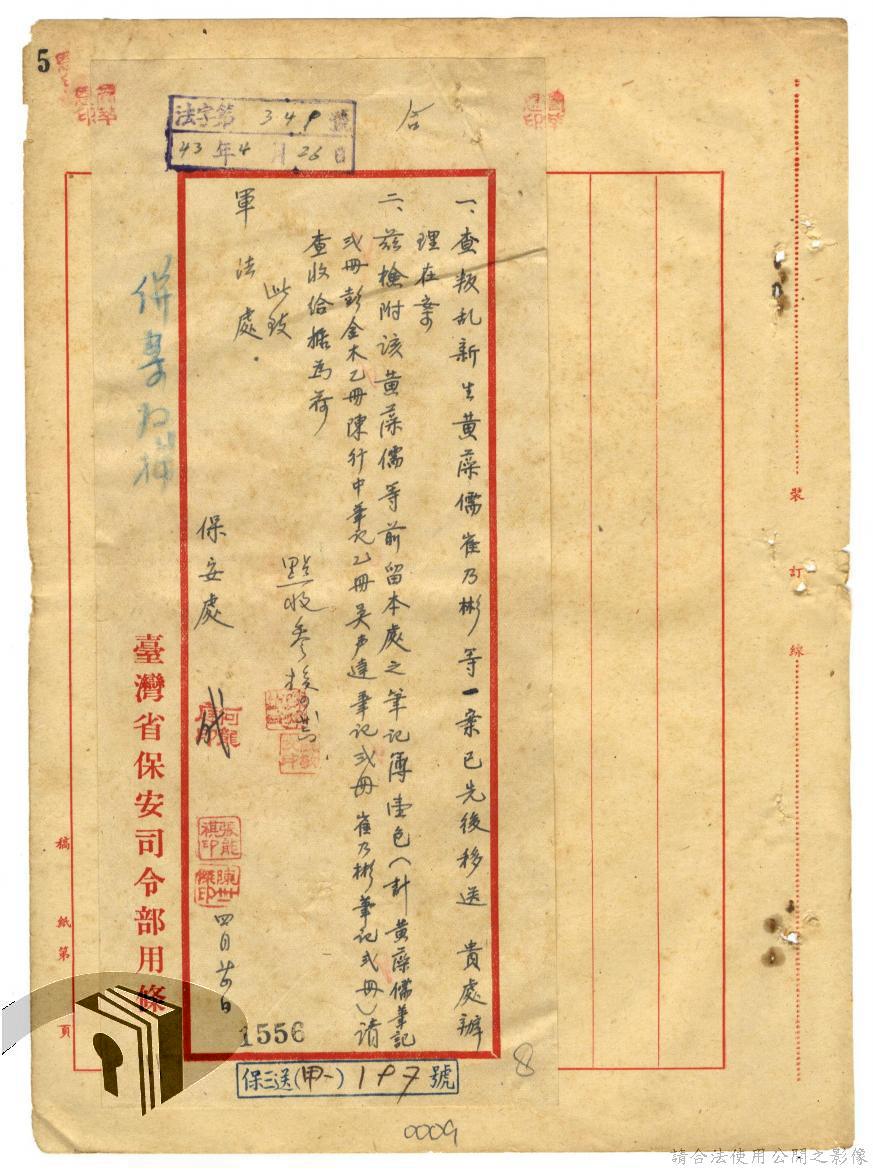 5
法字第349號
43年4月26日
一、查叛乱新生黃藻儒崔乃彬等一案已先後移送 貴處辦
理在案
二、茲檢附該黃藻儒等前留本處之筆記簿壹包(計黃藻儒筆記
弍冊彭金木乙冊陳行中筆記乙冊吳声達筆記弍冊崔乃彬筆記弍冊)請
查收給据為荷
此致
軍法處
點收參
保安處
四月廿日
1556
臺灣省保安司令部用條
保三送(甲一)197號
裝訂線
稿紙第頁
8
0009
請合法使用公開之影像